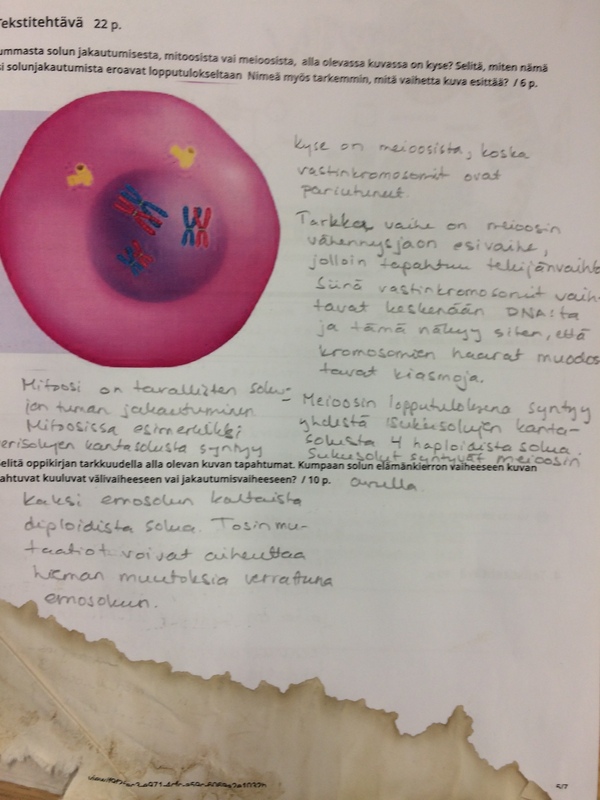 Tekstitehtävä 22 p.
ummasta solun jakautumisesta, mitoosista vai meioosista, alla olevassa kuvassa on kyse? Selitä, miten nämä
si solunjakautumista eroavat lopputulokseltaan Nimeä myös tarkemmin, mitä vaihetta kuva esittää? / 6 p.
Kyse on meioosista, koska
vastinkromosomit ovat
pariutuneet.
Tarkka vaihe on meioosin
vähennysjaon esivaihe,
jolloin tapahtuu tekijänvaihto
Siinä vastinkromosomit vaih-
tavat keskenään DNA:ta
ja tämä näkyy siten, että
kromosomien haarat muodos
tavat kiasmoja.
Meioosin lopputuloksena syntyy
yhdestä sukusolujen kanta-
solusta 4 haploidista solua.
Sukusolut syntyvät meioosin
avulla.
Mitoosi on tavallisten solu-
jen tuman jakautuminen
Mitoosissa esimerkiksi
erisolujen kantasolusta syntyy
Selitä oppikirjan tarkkuudella alla olevan kuvan tapahtumat. Kumpaan solun elämänkierron vaiheeseen kuvan
pahtuvat kuuluvat välivaiheeseen vai jakautumisvaiheeseen? / 10 p.
kaksi emosolun kaltaista
diploidista solua. Tosin mu-
taatiot voivat aiheuttaa
hieman muutoksia verrattuna
emosoluun.
5/7